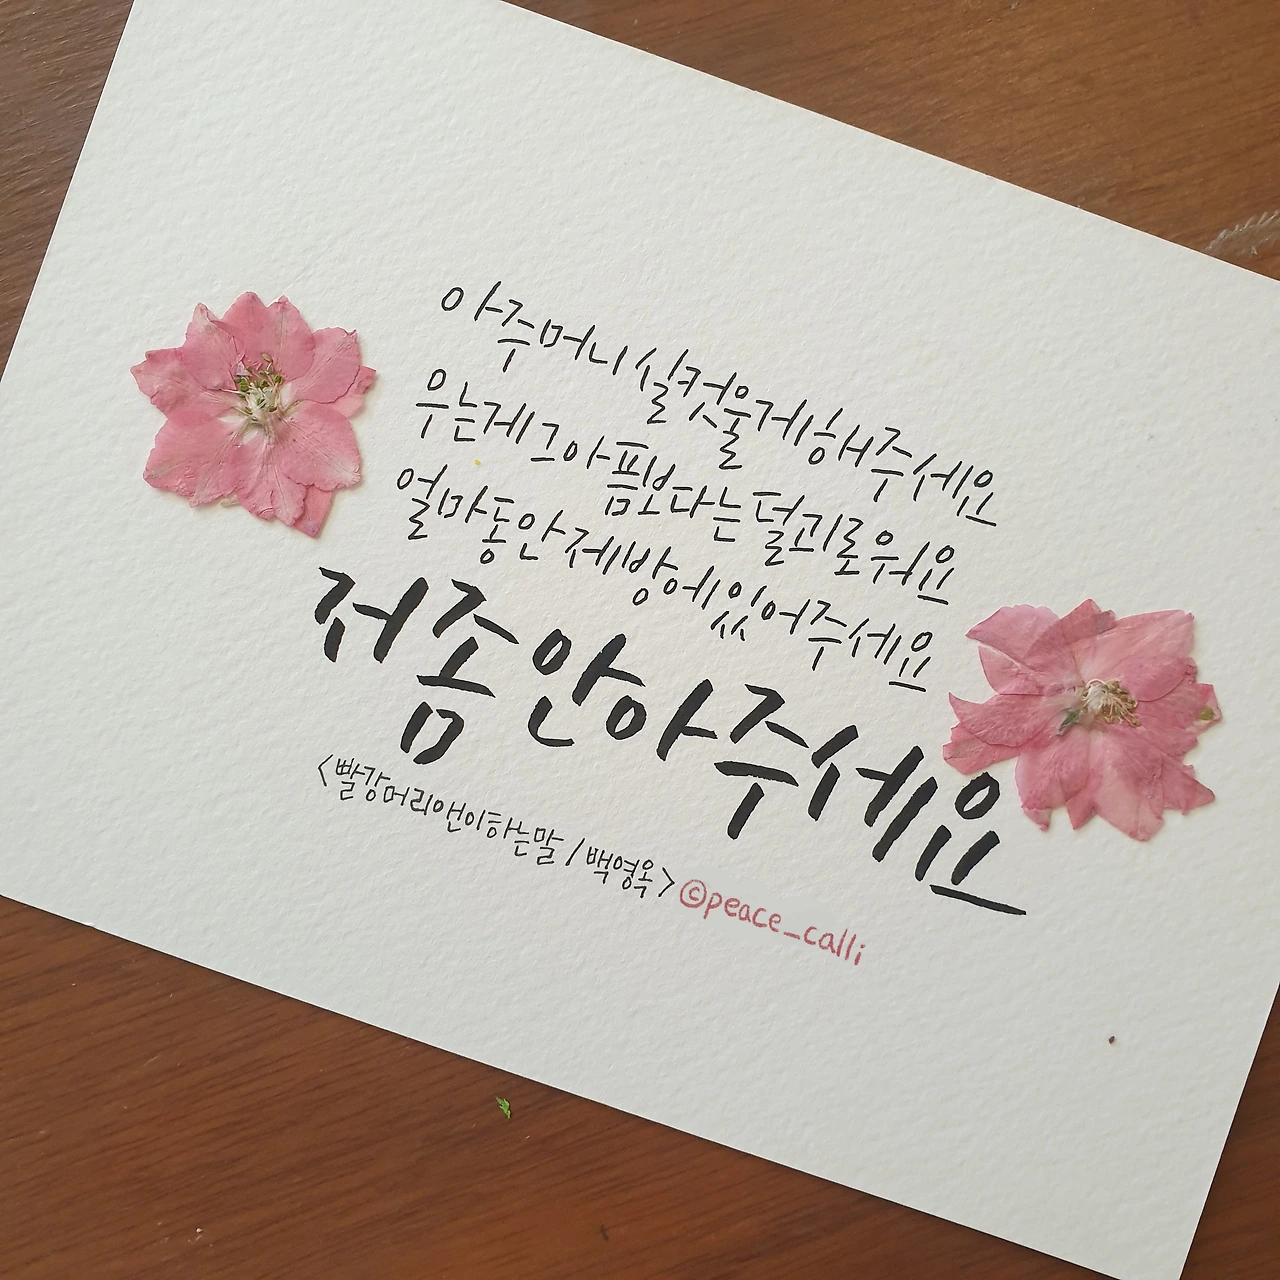 아주머니 실컷 울게 해주세요
우는게 그 아픔보다는 덜 괴로워요
얼마동안 제 방에 있어주세요
저 좀 안아주세요
<빨강머리앤이하는말 / 백영옥> ©peace_calli